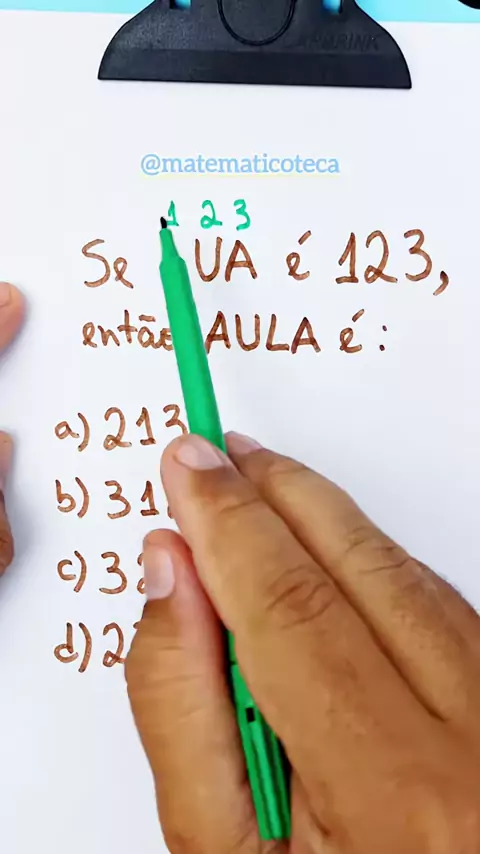 @matematicoteca
1 2 3
Se UA é 123,
então AULA é:
a) 213
b) 31
c) 3
d) 2